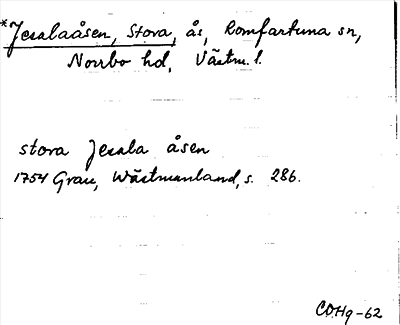 *Jesalaåsen, Stora, ås, Romfartuna sn,
Norrbo hd, Västm. l.
stora Jesala åsen
1754 Grau, Wästmanland, s. 286.
CDHg-62